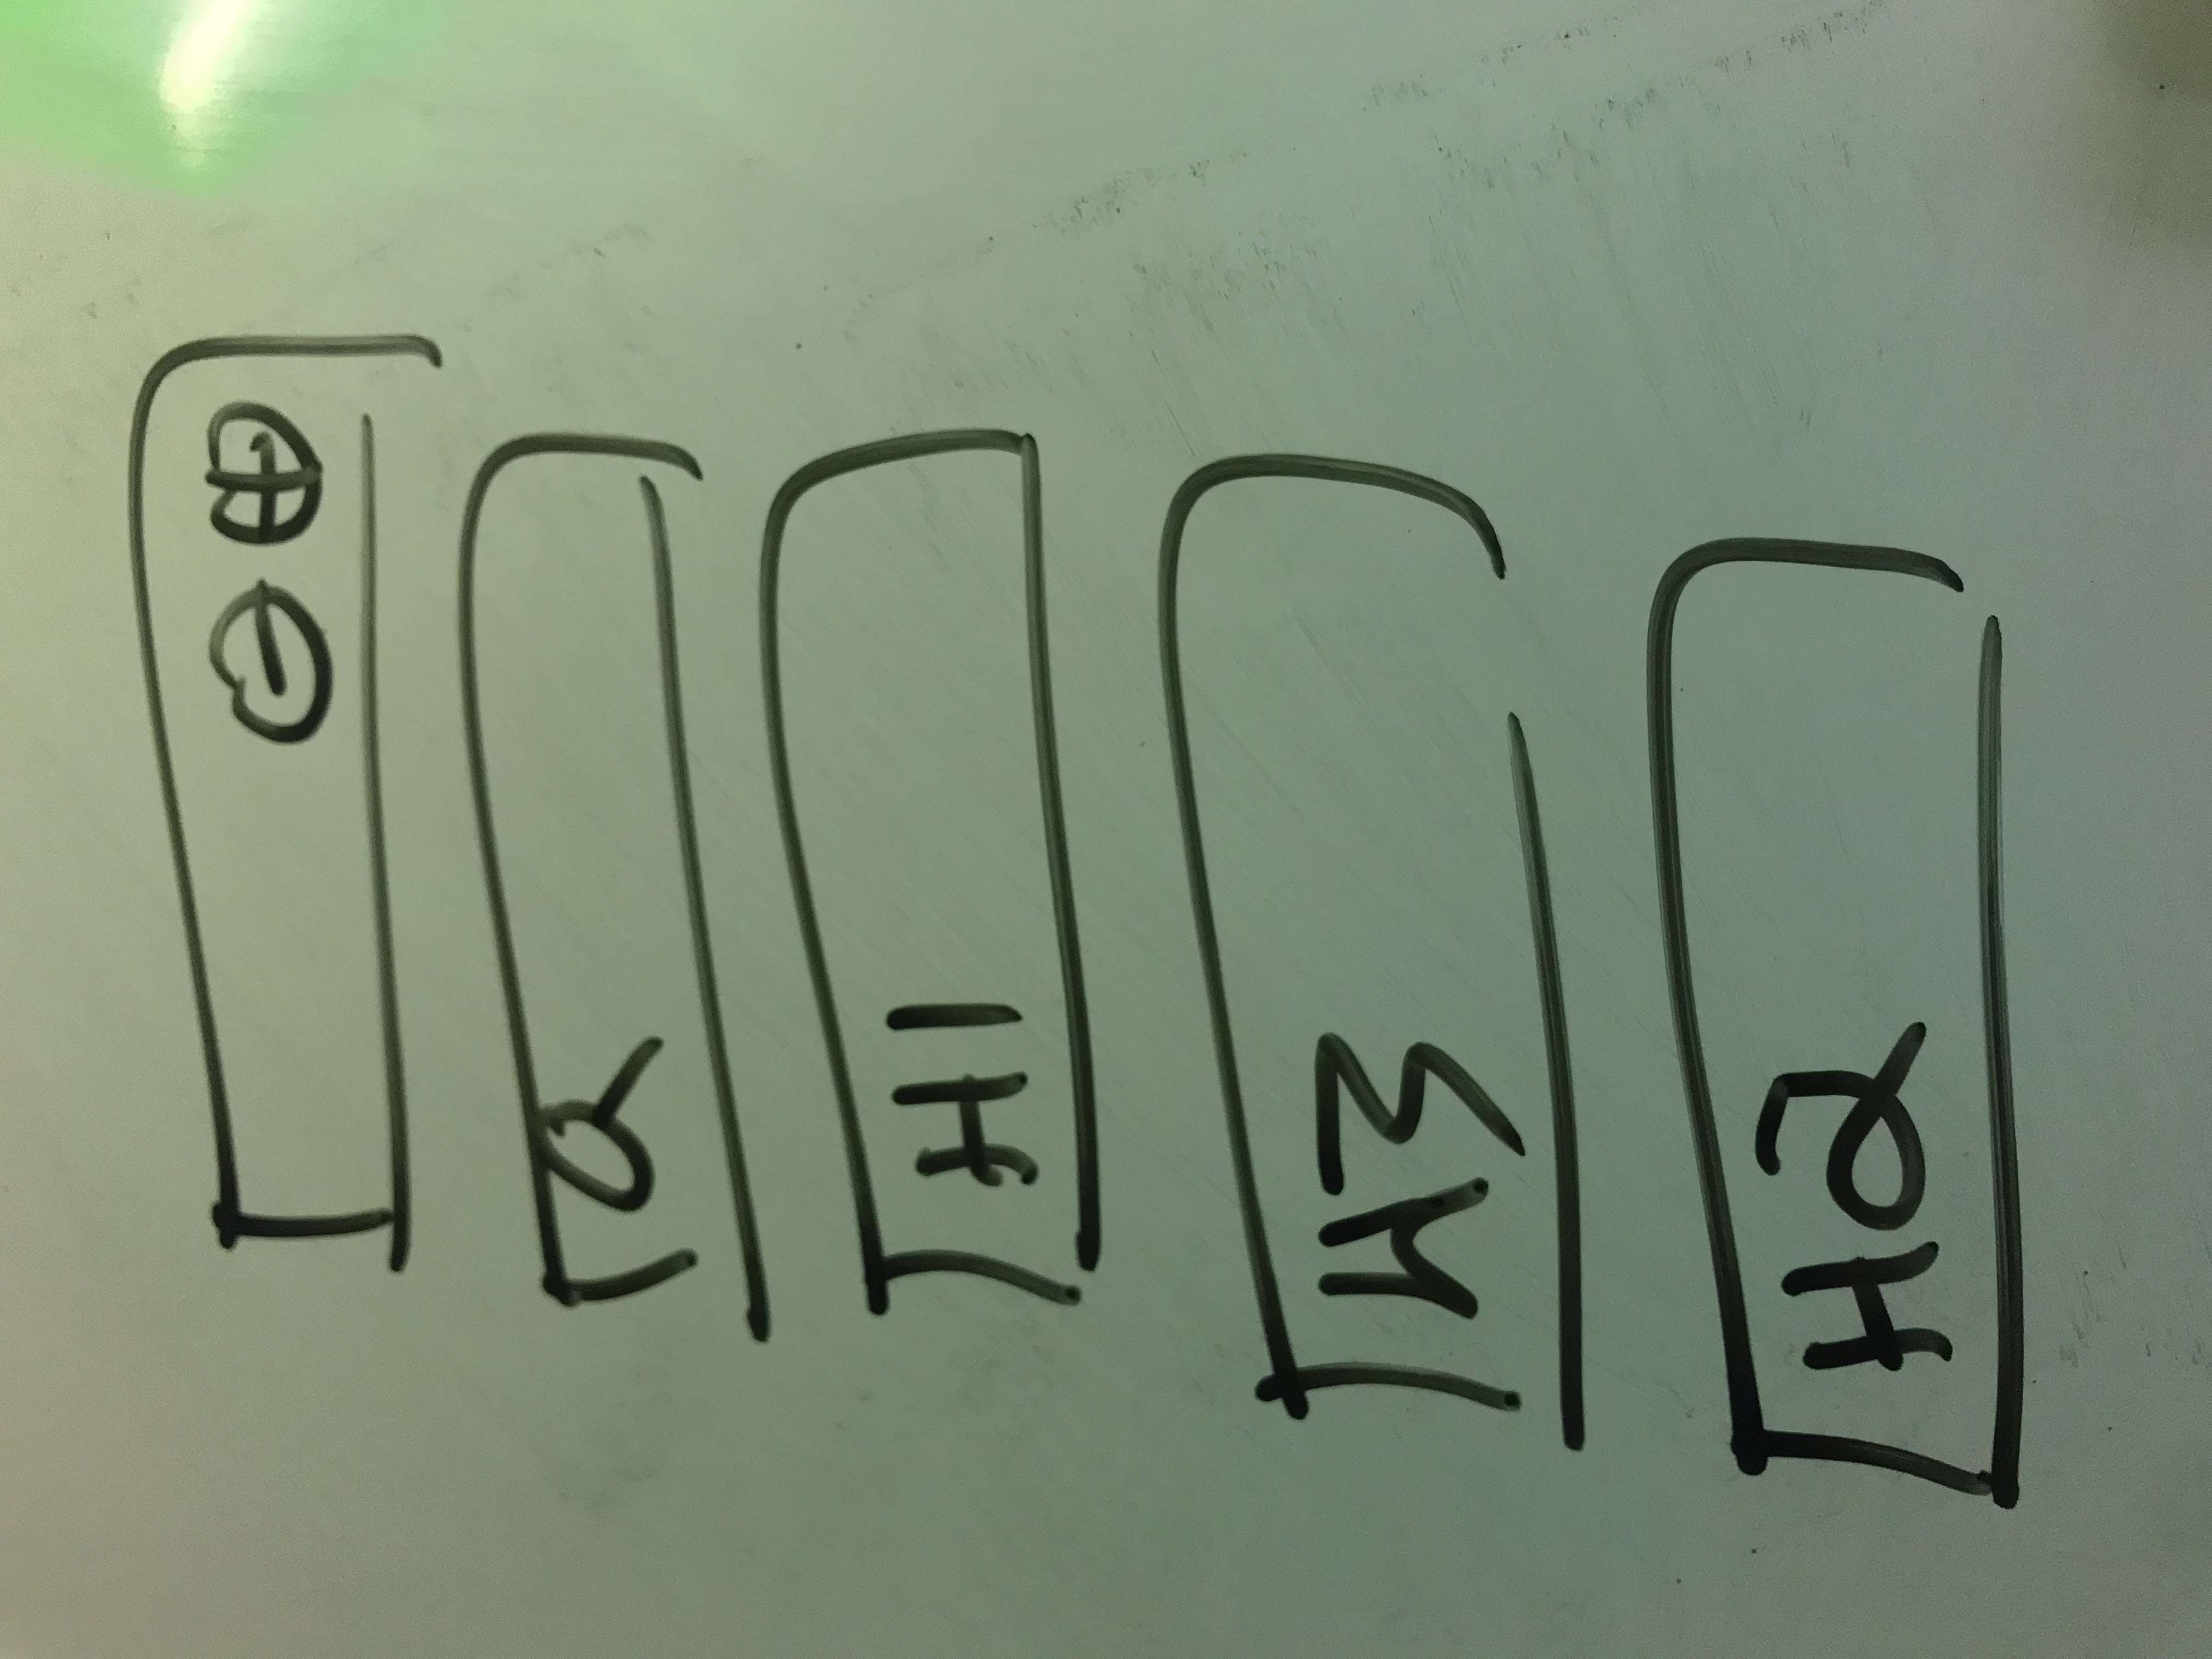 ⊖ ⊕
Q
H1
H3
H2